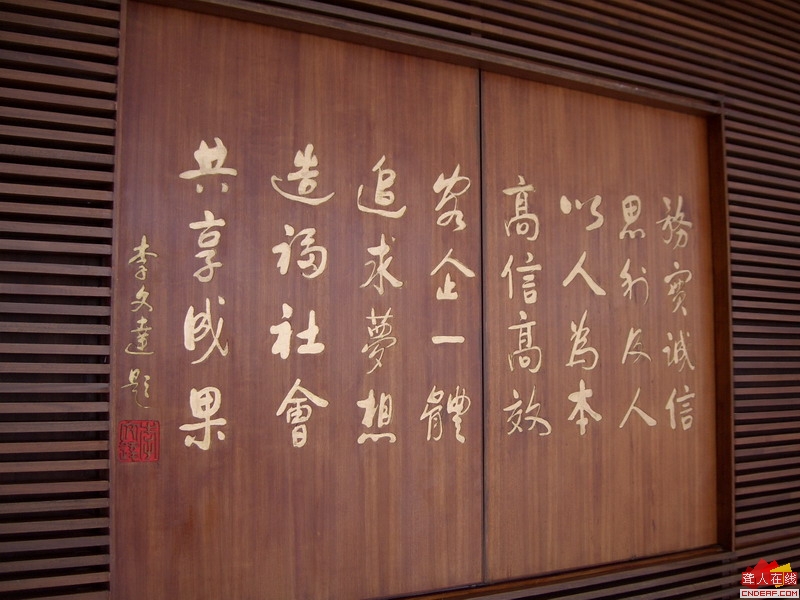 務實誠信
思利及人
以人為本
高信高效
客企一體
追求夢想
造福社會
共享成果
李文達題
聋人在线
CNDEAF.COM